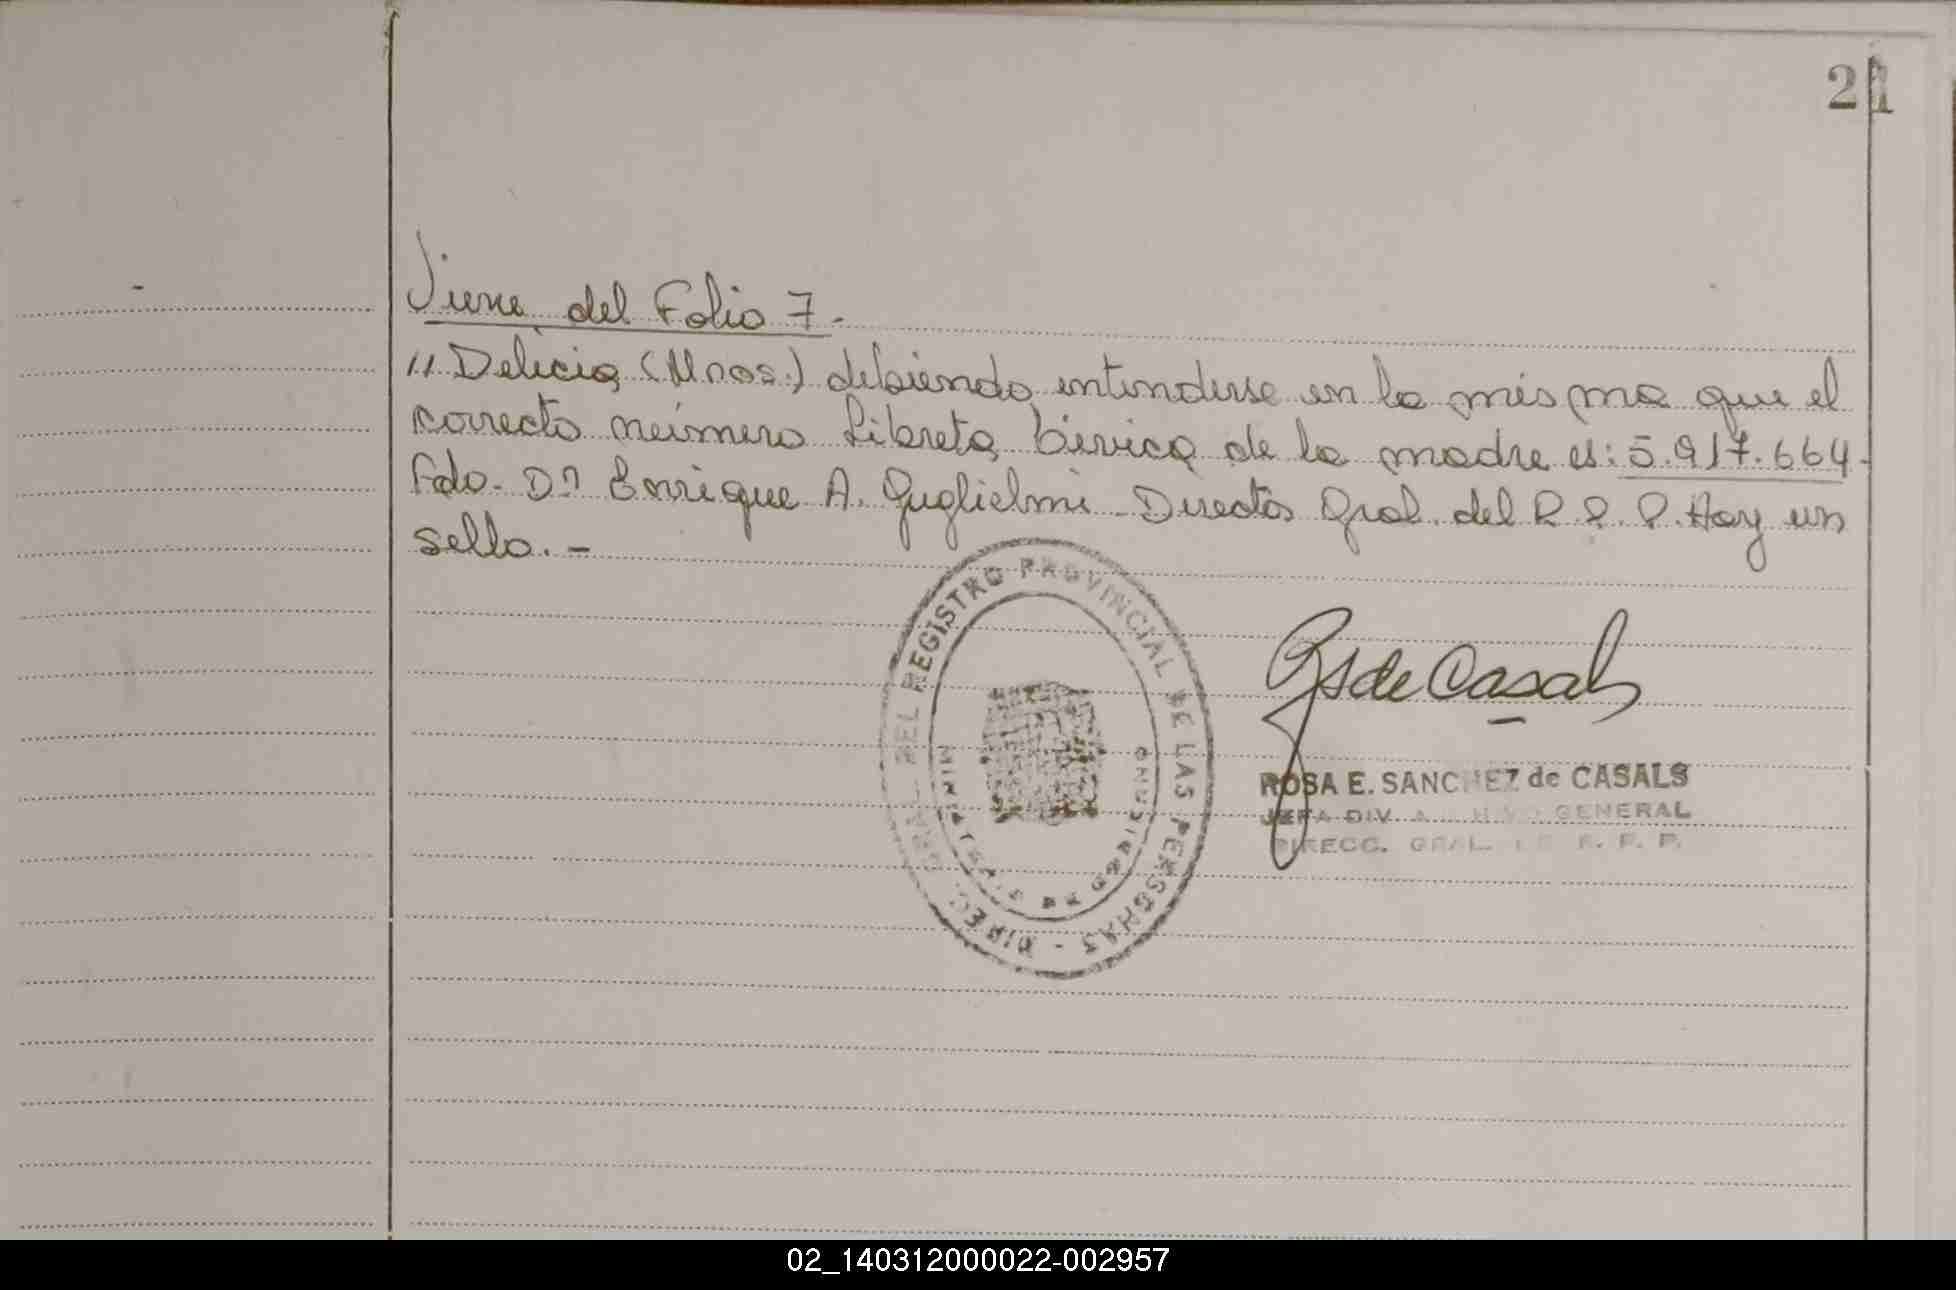 21
Viene del Folio 7.-
" Delicia (Mnos.) debiendo entenderse en la misma que el
correcto número Libreta Cívica de la madre es: 5.917.664-
Fdo. Dr. Enrique A. Guglielmi - Director Gral. del R. P. P. Hay un
sello. -
DIREC. GRAL. DEL REGISTRO PROVINCIAL DE LAS PERSONAS -
MINISTERIO DE GOBIERNO
RS de Casals
ROSA E. SANCHEZ de CASALS
JEFA DIV. ARCHIVO GENERAL
DIRECC. GRAL. DE R. P. P.
02_140312000022-002957